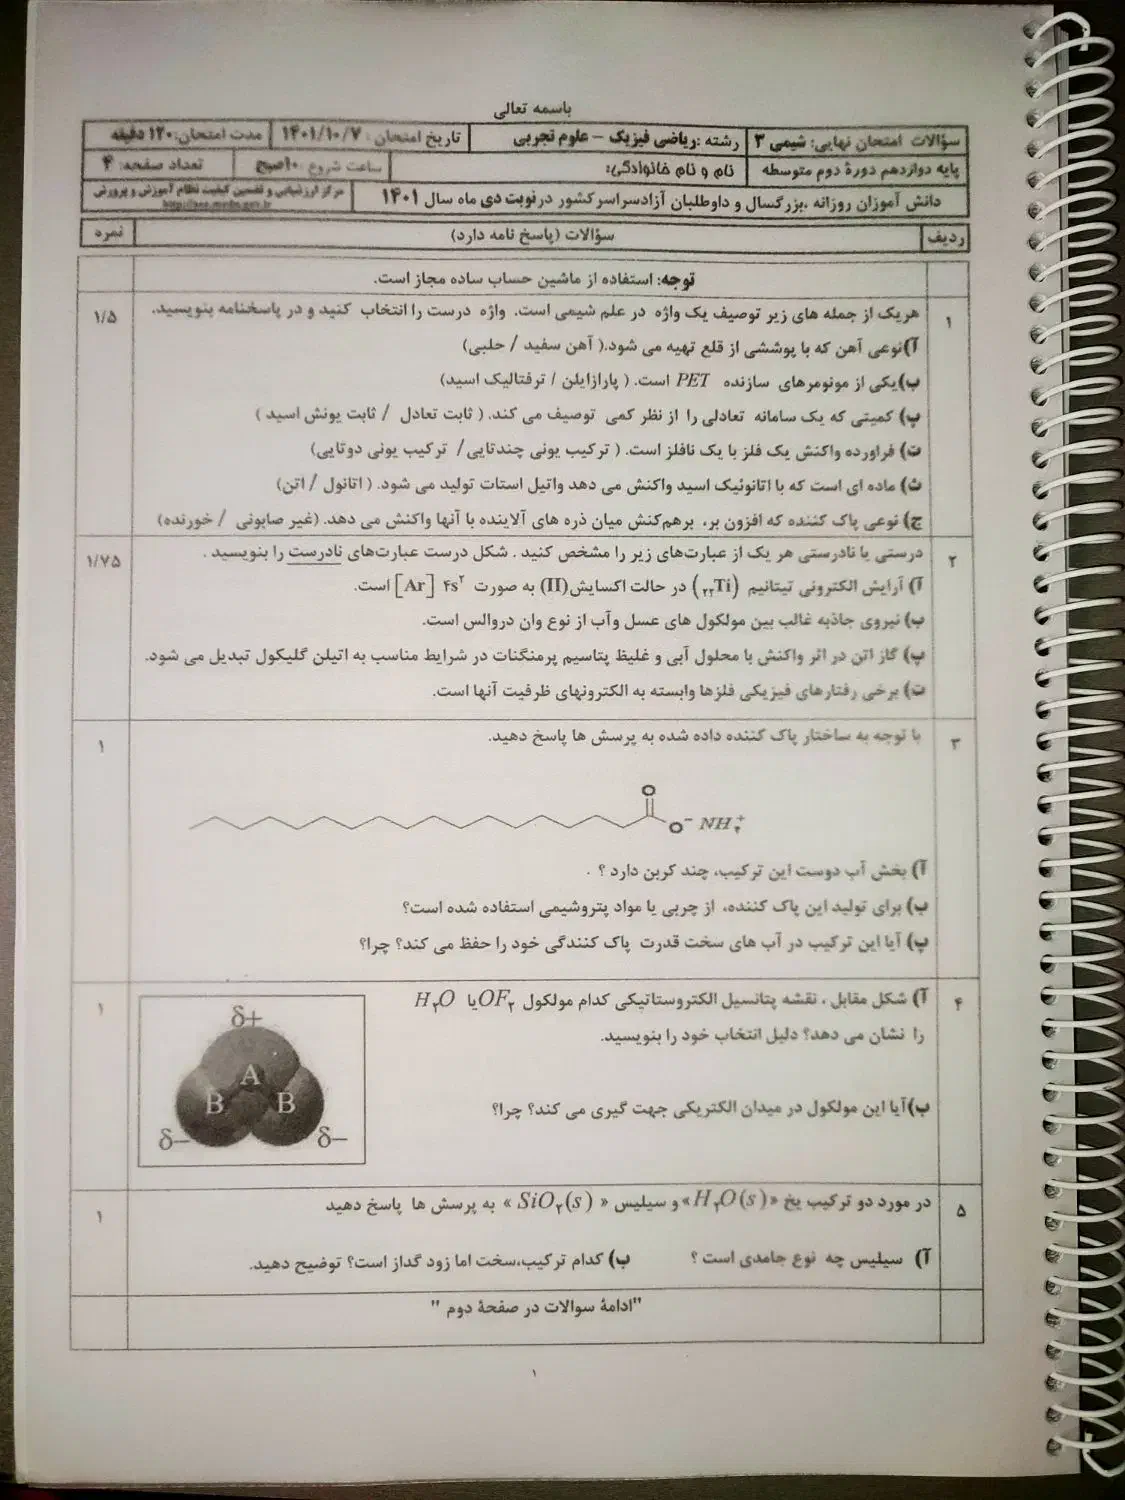 باسمه تعالی
سؤالات امتحان نهایی: شیمی ۳ رشته :ریاضی فیزیک – علوم تجربی تاریخ امتحان : ۱۴۰۱/۱۰/۷ مدت امتحان: ۱۲۰ دقیقه
پایه دوازدهم دورهٔ دوم متوسطه نام و نام خانوادگی: ساعت شروع :۱۰صبح تعداد صفحه: ۴
دانش آموزان روزانه ،بزرگسال و داوطلبان آزادسراسرکشور درنوبت دی ماه سال ۱۴۰۱ مرکز ارزشیابی و تضمین کیفیت نظام آموزش و پرورش
ردیف سؤالات (پاسخ نامه دارد) نمره
توجه: استفاده از ماشین حساب ساده مجاز است.
۱ هریک از جمله های زیر توصیف یک واژه در علم شیمی است. واژه درست را انتخاب کنید و در پاسخنامه بنویسید. ۱/۵
آ)نوعی آهن که با پوششی از قلع تهیه می شود.( آهن سفید / حلبی)
ب)یکی از مونومرهای سازنده PET است. ( پارازایلن / ترفتالیک اسید)
پ) کمیتی که یک سامانه تعادلی را از نظر کمی توصیف می کند. ( ثابت تعادل / ثابت یونش اسید )
ت) فراورده واکنش یک فلز با یک نافلز است. ( ترکیب یونی چندتایی/ ترکیب یونی دوتایی)
ث) ماده ای است که با اتانوئیک اسید واکنش می دهد واتیل استات تولید می شود. ( اتانول / اتن)
ج) نوعی پاک کننده که افزون بر، برهم‌کنش میان ذره های آلاینده با آنها واکنش می دهد. (غیر صابونی / خورنده)
۲ درستی یا نادرستی هر یک از عبارت‌های زیر را مشخص کنید . شکل درست عبارت‌های نادرست را بنویسید . ۱/۷۵
آ) آرایش الکترونی تیتانیم (₂₂Ti) در حالت اکسایش(II) به صورت [Ar] ۴s² است.
ب) نیروی جاذبه غالب بین مولکول های عسل وآب از نوع وان دروالس است.
پ) گاز اتن در اثر واکنش با محلول آبی و غلیظ پتاسیم پرمنگنات در شرایط مناسب به اتیلن گلیکول تبدیل می شود.
ت) برخی رفتارهای فیزیکی فلزها وابسته به الکترونهای ظرفیت آنها است.
۳ با توجه به ساختار پاک کننده داده شده به پرسش ها پاسخ دهید. ۱
O
O⁻ NH₄⁺
آ) بخش آب دوست این ترکیب، چند کربن دارد ؟ .
ب) برای تولید این پاک کننده، از چربی یا مواد پتروشیمی استفاده شده است؟
پ) آیا این ترکیب در آب های سخت قدرت پاک کنندگی خود را حفظ می کند؟ چرا؟
۴ آ) شکل مقابل ، نقشه پتانسیل الکتروستاتیکی کدام مولکول OF₂ یا H₂O ۱
را نشان می دهد؟ دلیل انتخاب خود را بنویسید.
ب)آیا این مولکول در میدان الکتریکی جهت گیری می کند؟ چرا؟
δ+
A
B B
δ– δ–
۵ در مورد دو ترکیب یخ «H₂O(s)»و سیلیس « SiO₂(s) » به پرسش ها پاسخ دهید ۱
آ) سیلیس چه نوع جامدی است ؟ ب) کدام ترکیب،سخت اما زود گداز است؟ توضیح دهید.
"ادامهٔ سوالات در صفحهٔ دوم "
۱